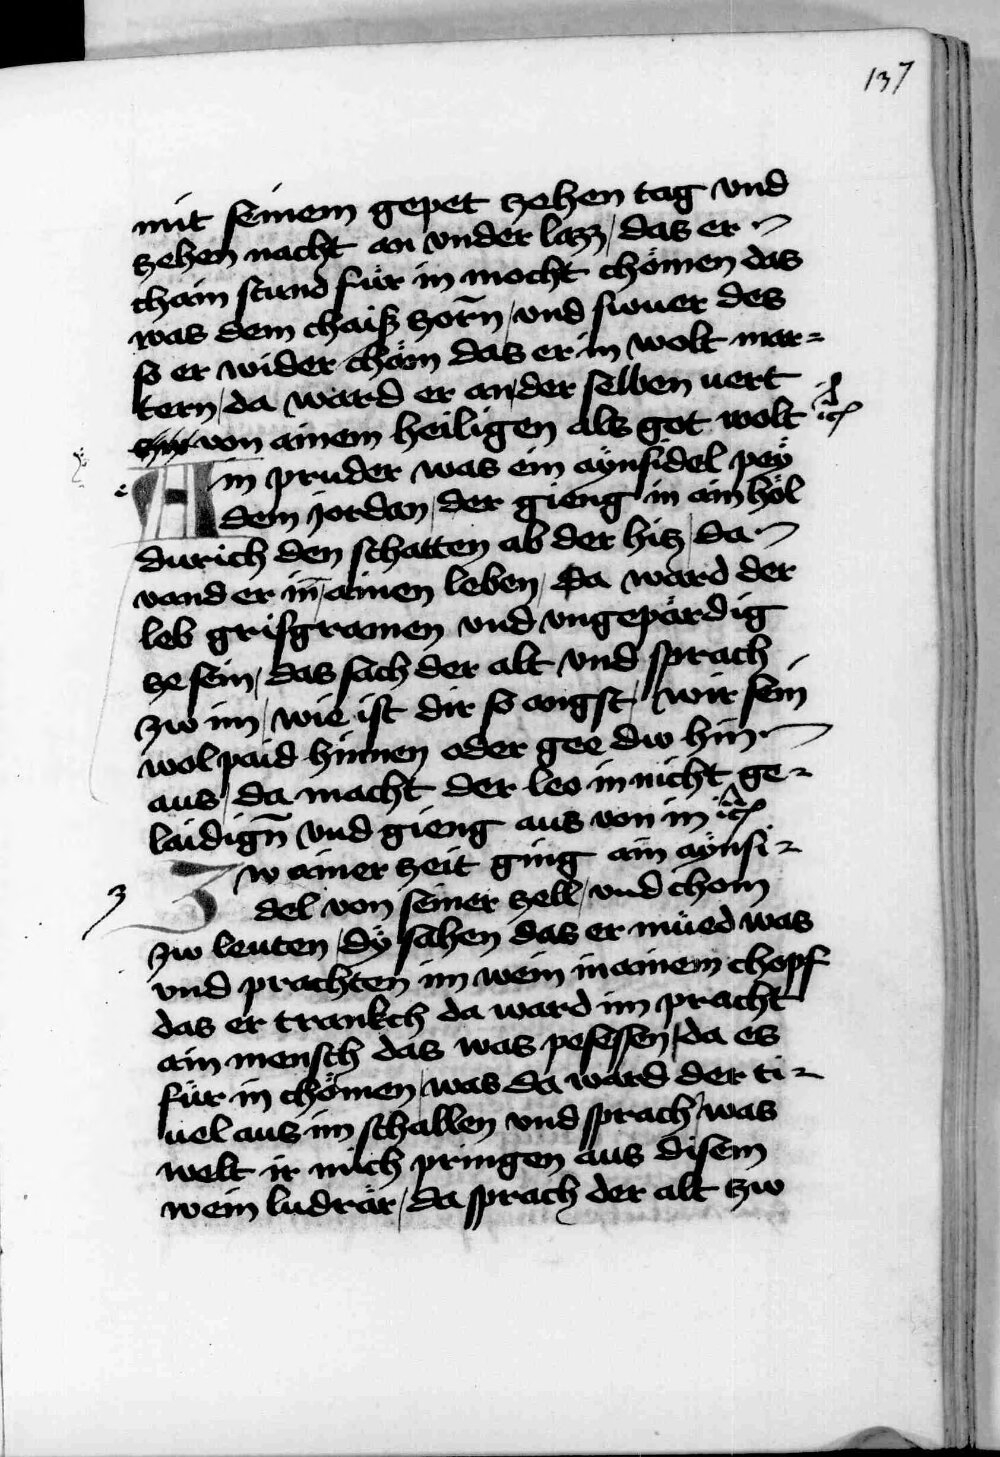 137
mit seinem gepet zehen tag vnd
zehen nacht an vnder lazz / das er
chain stund für in mocht chömen das
was dem chaiß zorn / vnd swuer des
so er wider chöm das er in wolt mar=
tern / da ward er an der selben uert
von ainem heiligen als got wolt
Ain pruder was ein aÿnsidel peÿ
dem jordan / der gieng in ain höl
durich den schatten ab der hitz / da
vand er in ainen leben / Da ward der
leb grisgramen vnd vngepärdig
ze sein / das sach der alt vnd sprach
zw im / wie ist dir so angst / wir sein
wol paid hinnen oder gee dw hin
aus / da macht der leo in nicht ge=
laidign vnd gieng aus von im
3
Zw ainer zeit ging ain aÿnsi=
del von seiner zell / vnd chom
zw leuten / dÿ sahen das er müed was
vnd prachten im wein in ainem chopf
das er trankch da ward im pracht
ain mensch das was pesessen / da es
für in chömen was da ward der ti=
uel aus im schallen vnd sprach / was
welt ir mich pringen aus disem
wein ludrär / da sprach der alt zw